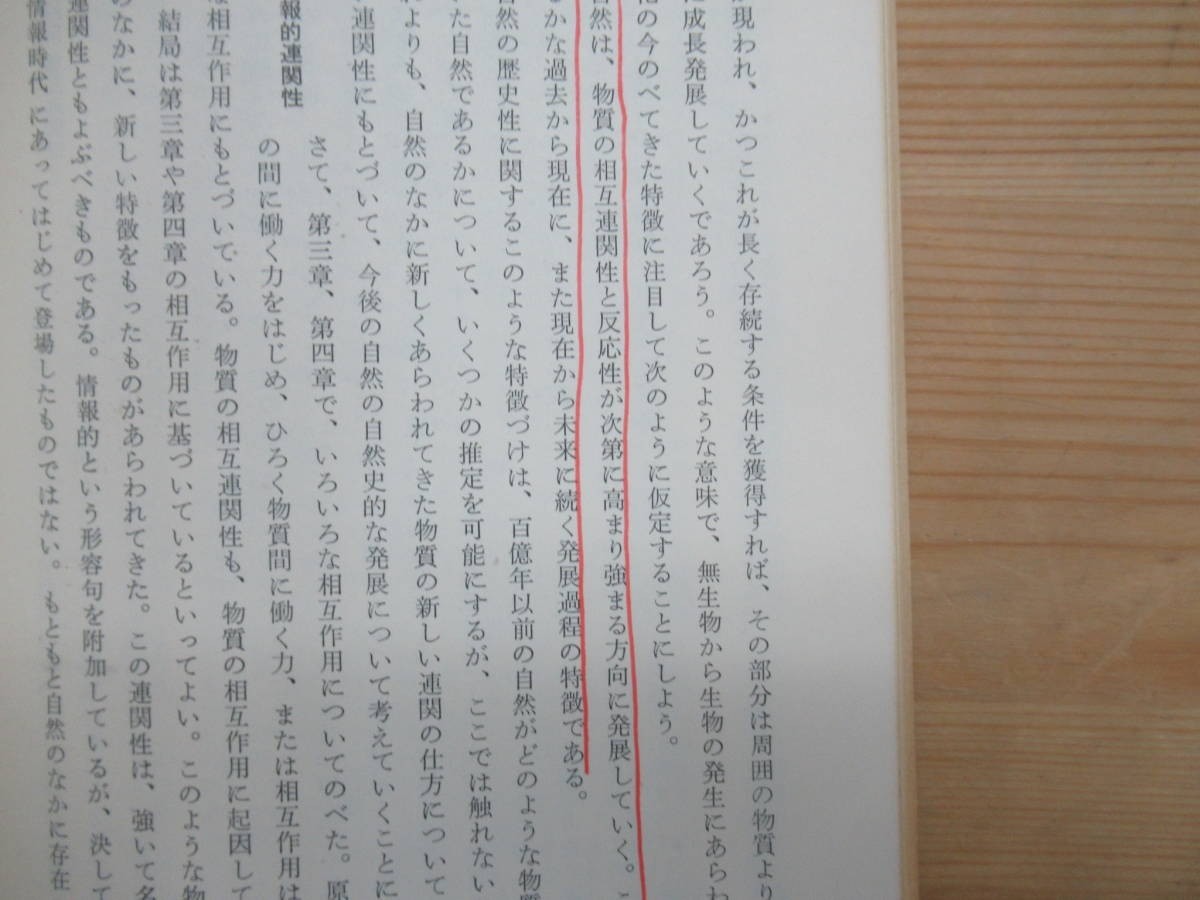 が現われ、かつこれが長く存続する条件を獲得すれば、その部分は周囲の物質より
に成長発展していくであろう。このような意味で、無生物から生物の発生にあらわ
の今のべてきた特徴に注目して次のように仮定することにしよう。
自然は、物質の相互連関性と反応性が次第に高まり強まる方向に発展していく。こ
るかな過去から現在に、また現在から未来に続く発展過程の特徴である。
自然の歴史性に関するこのような特徴づけは、百億年以前の自然がどのような物質
いた自然であるかについて、いくつかの推定を可能にするが、ここでは触れない
れよりも、自然のなかに新しくあらわれてきた物質の新しい連関の仕方について
連関性にもとづいて、今後の自然の自然史的な発展について考えていくことに
報的連関性
さて、第三章、第四章で、いろいろな相互作用についてのべた。原
の間に働く力をはじめ、ひろく物質間に働く力、または相互作用は
な相互作用にもとづいている。物質の相互連関性も、物質の相互作用に起因して
結局は第三章や第四章の相互作用に基づいているといってよい。このような物
のなかに、新しい特徴をもったものがあらわれてきた。この連関性は、強いて名
連関性ともよぶべきものである。情報的という形容句を附加しているが、決して
情報時代にあってはじめて登場したものではない。もともと自然のなかに存在